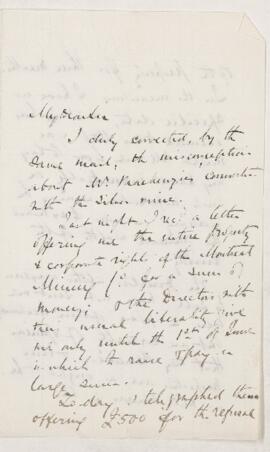 My dear
I duly corrected, by the
same mail, the misconception
about Mr. Mackenzie's connection
with the Silver mine.
Last night I rec'd a letter
offering me the entire property
& corporate rights of the Montreal
Mining Co. for a sum of
money; & the Directors with
their usual liberality give
me only until the 1st of June
in which to raise & pay a
large sum.
To-day I telegraphed them
offering £500 for the refusal